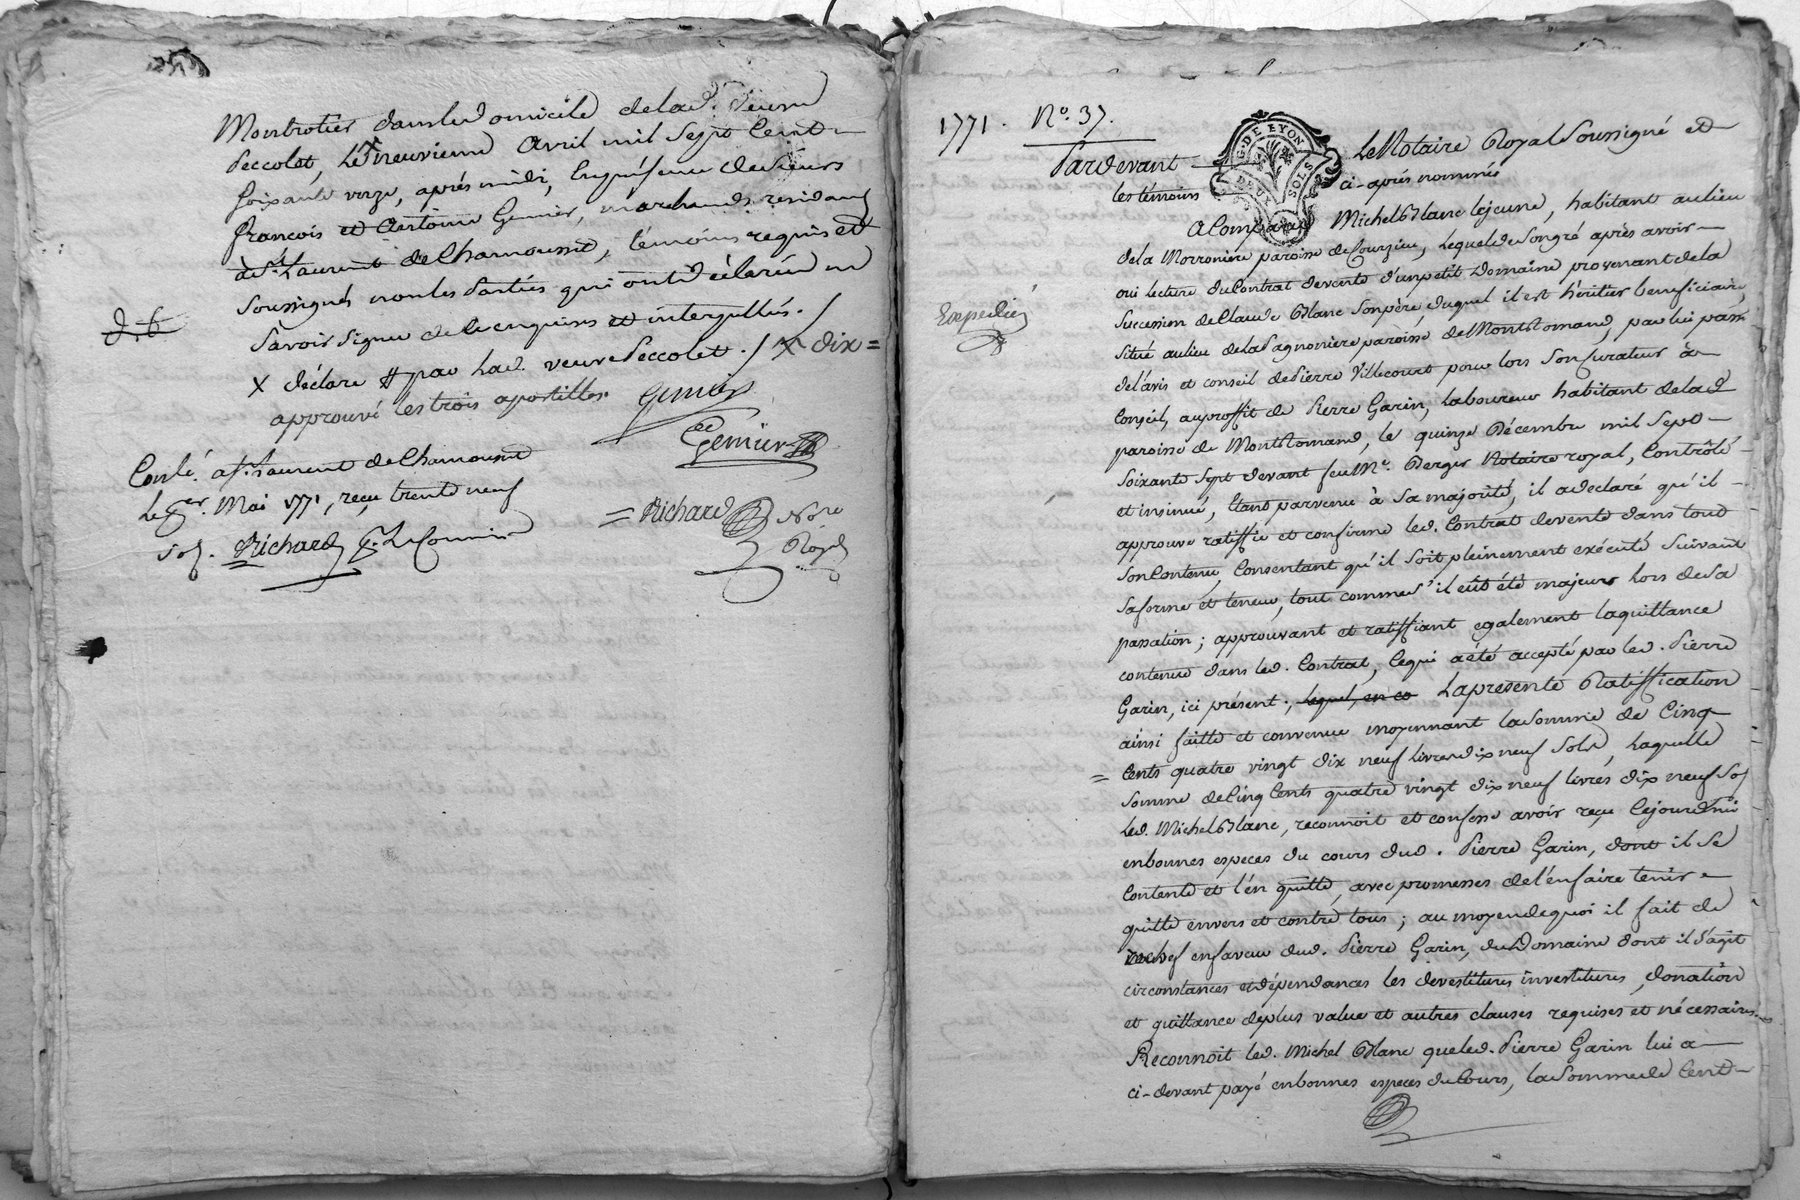 Montrotier dans le domicile de lad. veuve
Peccolet, le X neuvieme avril mil sept cent
soixante onze, après midi, en présence de sieurs
françois et Antoine Gemier, marchands residants
à St. Laurent de Chamousset, témoins requis et
soussignés non les Parties qui ont déclaré ne
savoir signer de ce enquises et interpellés. /
X déclare # par lad. veuve Peccolet. / X dix =
approuvé les trois apostilles. Gemier
Gemier
Conlé. a St. Laurent de Chamousset
le 1er. Mai 1771, reçu trente neuf
sols. Richard
= Richard Nore
Royal
1771. No. 37.
G. DE LYON
DEUX SOLS
Pardevant Le Notaire Royal soussigné et
les témoins ci-après nommés
A Comparu Michel Blanc lejeune, habitant au lieu
de la Morroniere paroisse de Courzieu, lequel de son gré après avoir
oui lecture du Contrat de vente d'un petit Domaine provenant de la
succession de Claude Blanc son père duquel il est héritier beneficiaire,
situé au lieu de la Pagnoniere paroisse de Montromand, par lui passé
de l'avis et conseil de Pierre Villecourt pour lors son Curateur à
Conseil, au proffit de Pierre Garin, laboureur habitant de lad.
paroisse de Montromand, le quinze Décembre mil sept
soixante sept devant feu Me. Berger Notaire royal, Contrôlé
et insinué, Etant parvenu à sa majorité, il a declaré qu'il
approuve ratiffie et confirme led. Contrat de vente dans tout
son Contenu, Consentant qu'il soit pleinement exécuté suivant
sa forme et teneur, tout comme s'il eût été majeur lors de sa
passation; approuvant et ratiffiant egalement la quittance
contenue dans led. Contrat, ce qui a été accepté par led. Pierre
Garin, ici présent; lequel, en co La presente Ratiffication
ainsi faitte et convenue moyennant la somme de Cinq
= Cents quatre vingt dix neuf livres dix neuf sols, laquelle
somme de Cinq Cents quatre vingt dix neuf livres dix neuf sols
led. Michel Blanc, reconnoit et confesse avoir reçu cejourd'hui
en bonnes especes du cours dud. Pierre Garin, dont il se
Contente et l'en quitte, avec promesses de l'en faire tenir
quitte envers et contre tous; au moyen de quoi il fait de
rechef en faveur dud. Pierre Garin, du Domaine dont il s'agit
circonstances et dépendances les devestitures investitures, donation
et quittance de plus value et autres clauses requises et nécessaires.
Reconnoit led. Michel Blanc que led. Pierre Garin lui a
ci-devant payé en bonnes especes du Cours, la somme de Cent